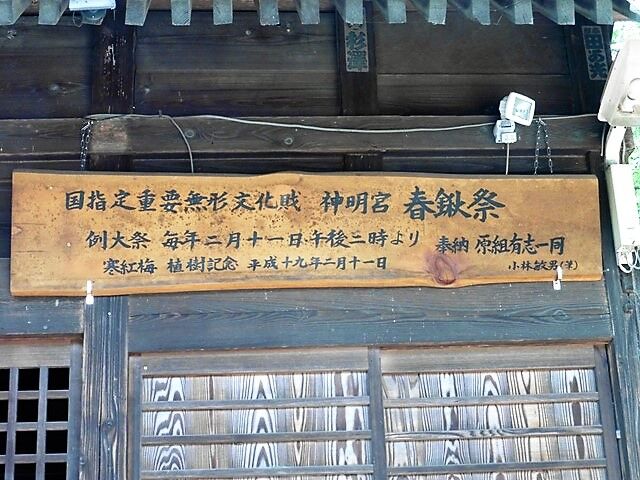 国指定重要無形文化財 神明宮 春鍬祭
例大祭 毎年二月十一日午後二時より 奉納 原組有志一同
寒紅梅 植樹記念 平成十九年二月十一日 小林敏男(筆)